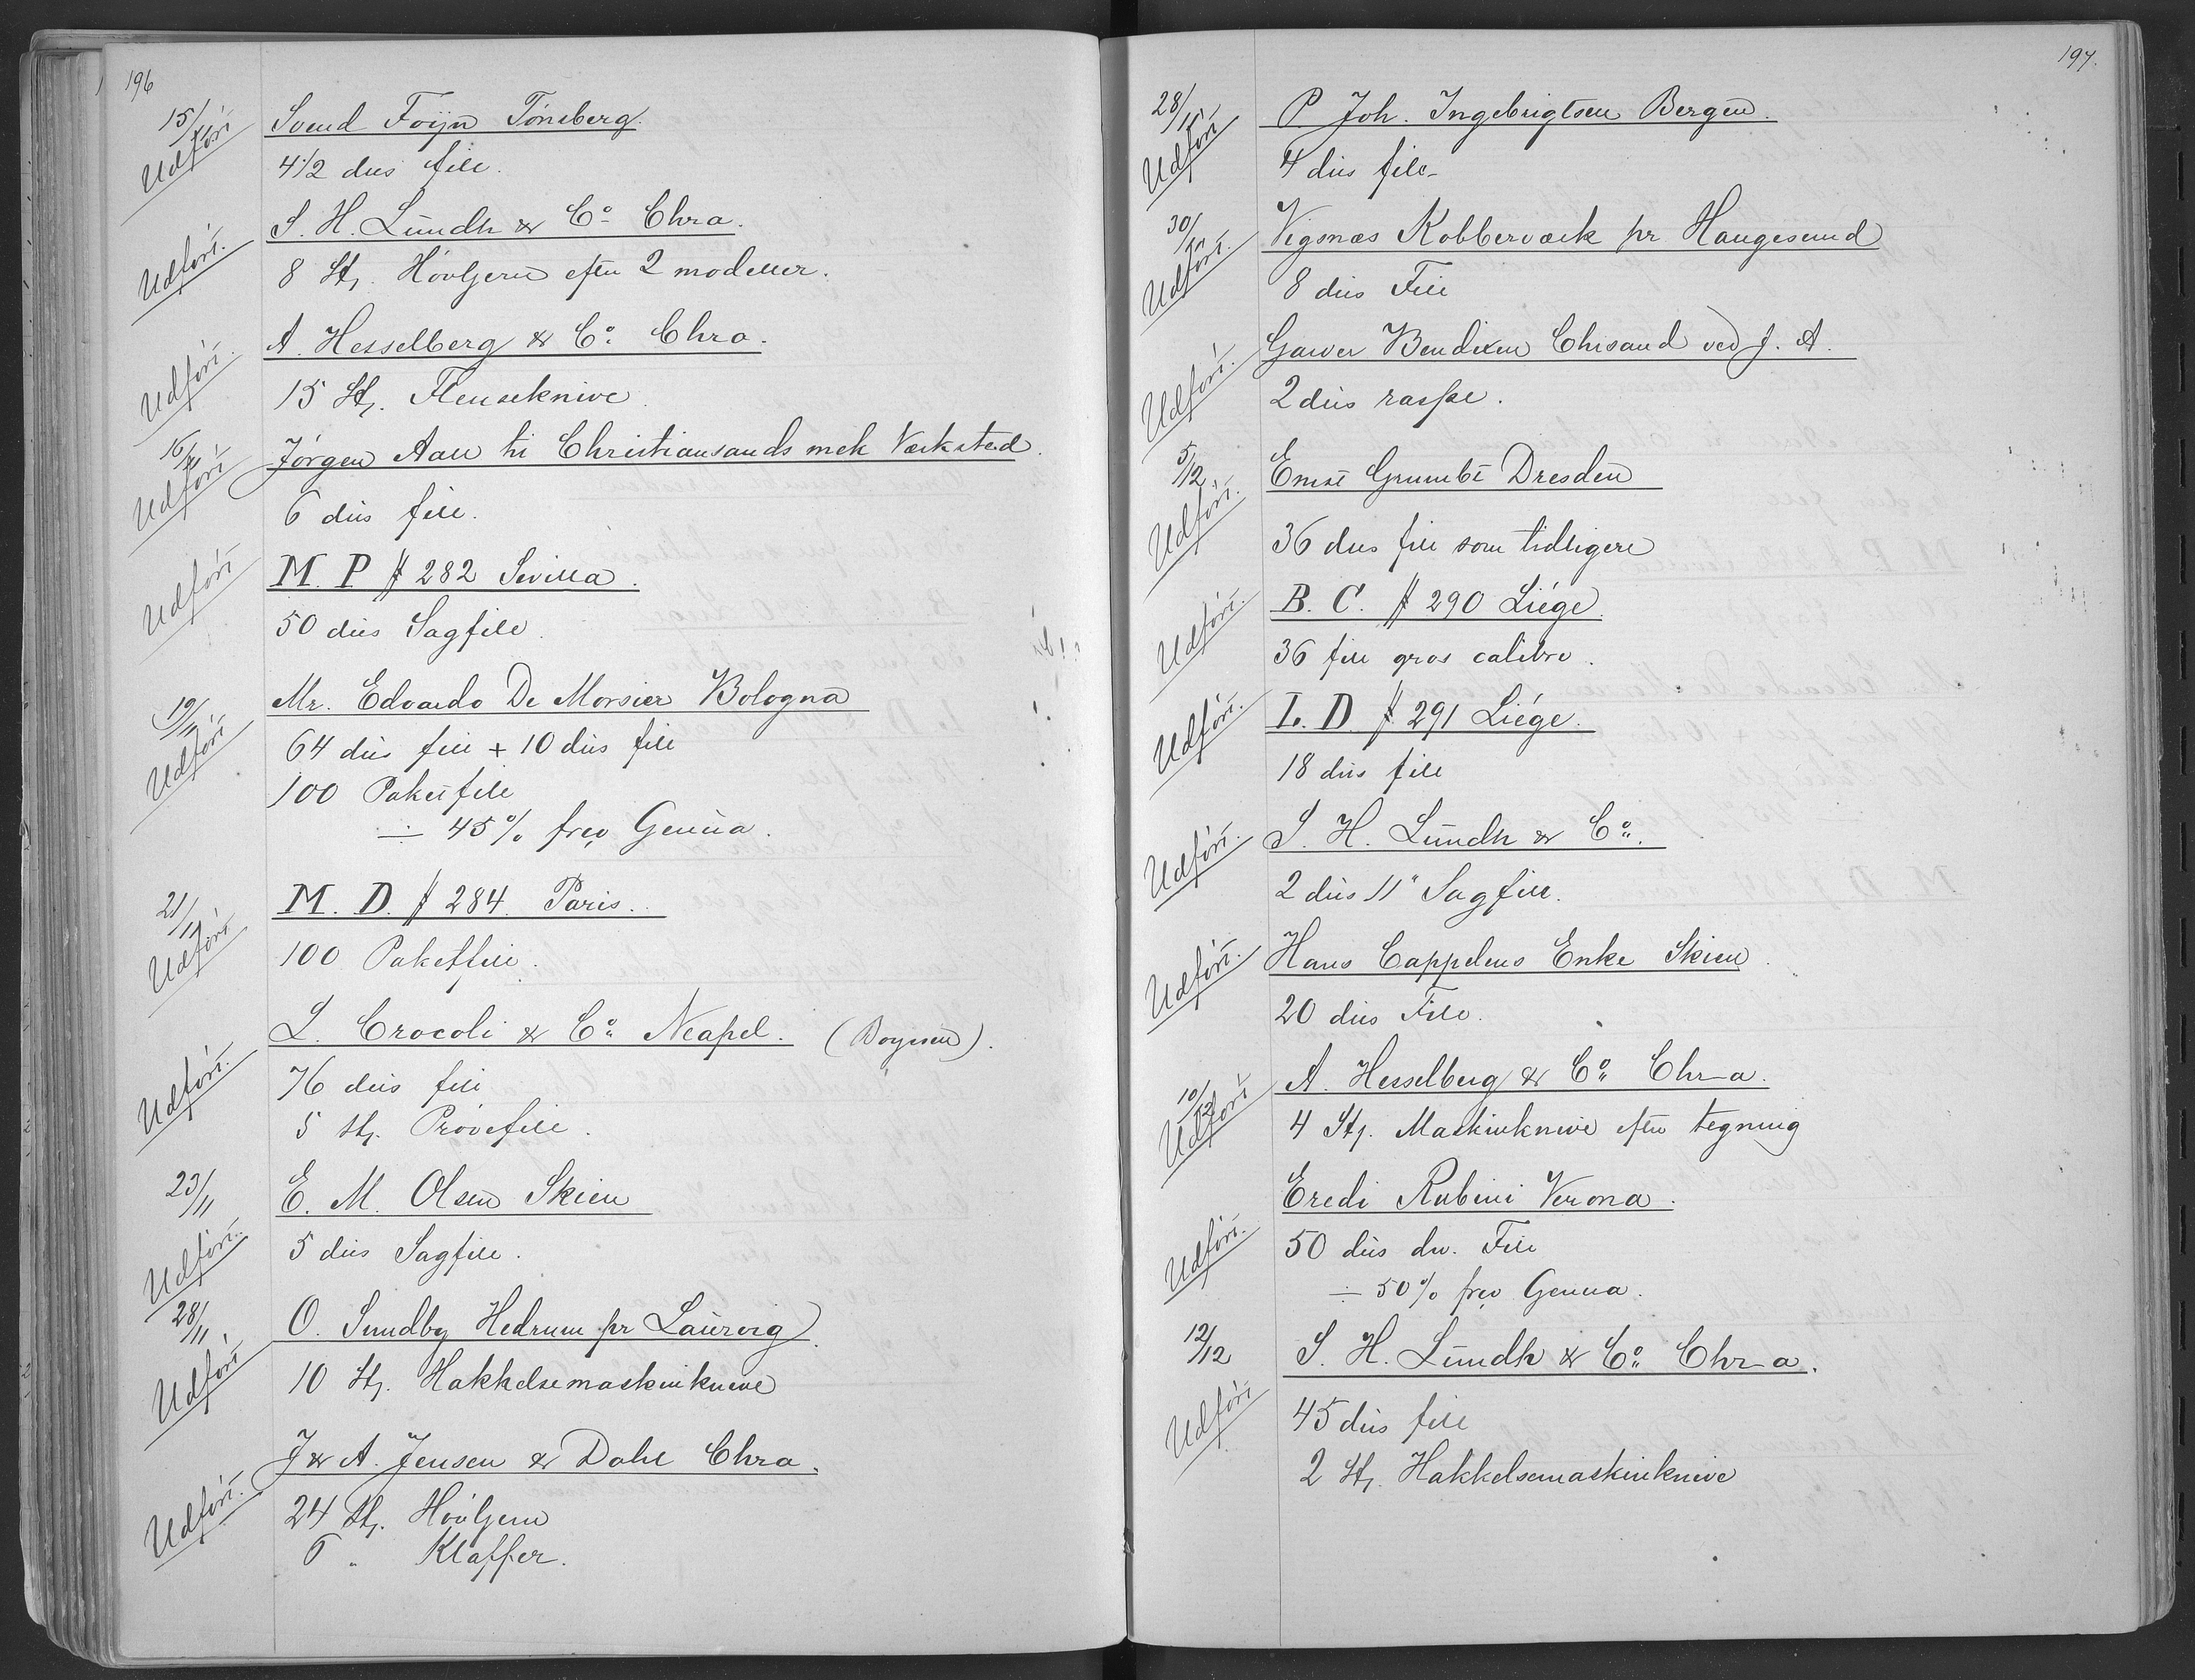 196
15/11 Udført Svend Foÿn Tönsberg.
4 1/2 dus file.
Udført. S. H. Lundh & Co. Chra.
8 St. Høvljern efter 2 modeller.
Udført. A. Hesselberg & Co. Chra.
15 St. Flenseknive
16/11 Udført Jörgen Aall til Christiansands mek Værksted.
6 dus file.
Udført M. P # 282 Sevilla.
50 dus Sagfile.
19/11 Udført Mr. Edoardo De Morsier Bologna
64 dus file + 10 dus file
100 Paketfile
÷ 45% frco Genua.
21/11 Udført M. D. # 284 Paris.
100 Paketfile.
Udført. L. Crocoli & Co. Neapel. (Boysen).
76 dus file
5 St. Prövefile.
23/11 Udført. E. M. Olsen Skien
5 dus Sagfile.
28/11 Udført O. Sundby Hedrum pr Laurvig.
10 St. Hakkelsemaskinknive
Udført. J & A. Jensen & Dahl Chra.
24 St. Høvljern
6 " Klaffer.
197.
28/11 Udført P. Joh. Ingebrigtsen Bergen.
4 dus file
30/11 Udført. Vigsnæs Kobberværk pr Haugesund
8 dus File
Udført. Bendixen Chrsand ved J. A.
2 dus raspe.
5/12 Udført. Ernst Grumbt Dresden
36 dus file som tidligere
Udført. B. C. # 290 Liége.
36 file gros calibre.
Udført. L. D. # 291 Liége.
18 dus file
Udført. S. H. Lundh & Co.
2 dus 11" Sagfile.
Udført. Hans Cappelens Enke Skien.
20 dus File.
10/12 Udført A. Hesselberg & Co. Chr-a.
4 St. Maskinknive efter tegning
Udført. Eredi Rubini Verona.
50 dus div. File
÷ 50% frco Genua.
12/12 Udført S. H. Lundh & Co. Chr-a.
45 dus file
2 St. Hakkelsemaskinknive